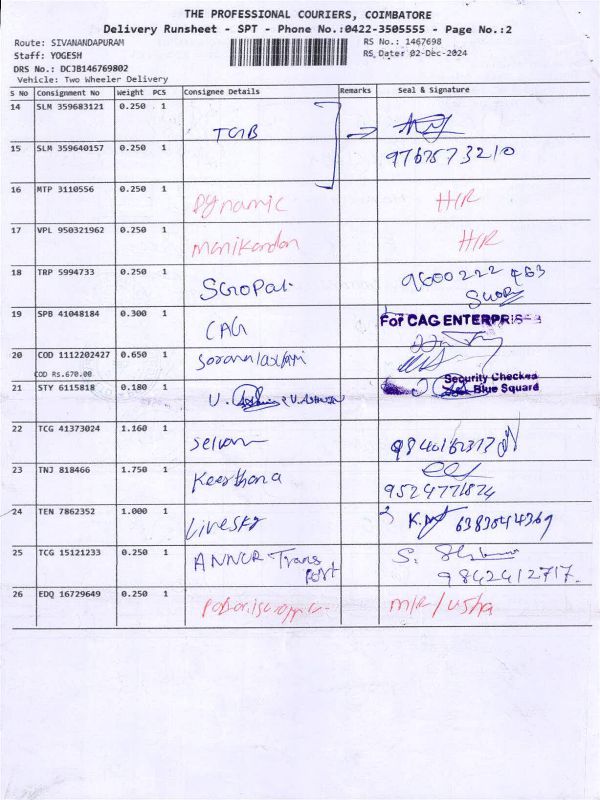 THE PROFESSIONAL COURIERS, COIMBATORE
Delivery Runsheet - SPT - Phone No.:0422-3505555 - Page No.:2
Route: SIVANANDAPURAM
RS No.: 1467698
Staff: YOGESH
RS Date: 02-Dec-2024
DRS No.: DCJB146769802
Vehicle: Two Wheeler Delivery
S No Consignment No Weight PCS Consignee Details Remarks Seal & Signature
14 SLM 359683121 0.250 1 TGB
15 SLM 359640157 0.250 1
16 MTP 3110556 0.250 1 Dynamic H/R
17 VPL 950321962 0.250 1 Manikandan H/R
18 TRP 5994733 0.250 1 9600222463
19 SPB 41048184 0.300 1 CAG For CAG ENTERPRISES
20 COD 1112202427 0.650 1
COD Rs.670.00
Security Checked
21 STY 6115818 0.180 1 Blue Square
22 TCG 41373024 1.160 1 Selvam
23 TNJ 818466 1.750 1 Keerthana
24 TEN 7862352 1.000 1 Livesky
25 TCG 15121233 0.250 1 ANNUR Transport 9842412717.
26 EDQ 16729649 0.250 1 M/R/Usha